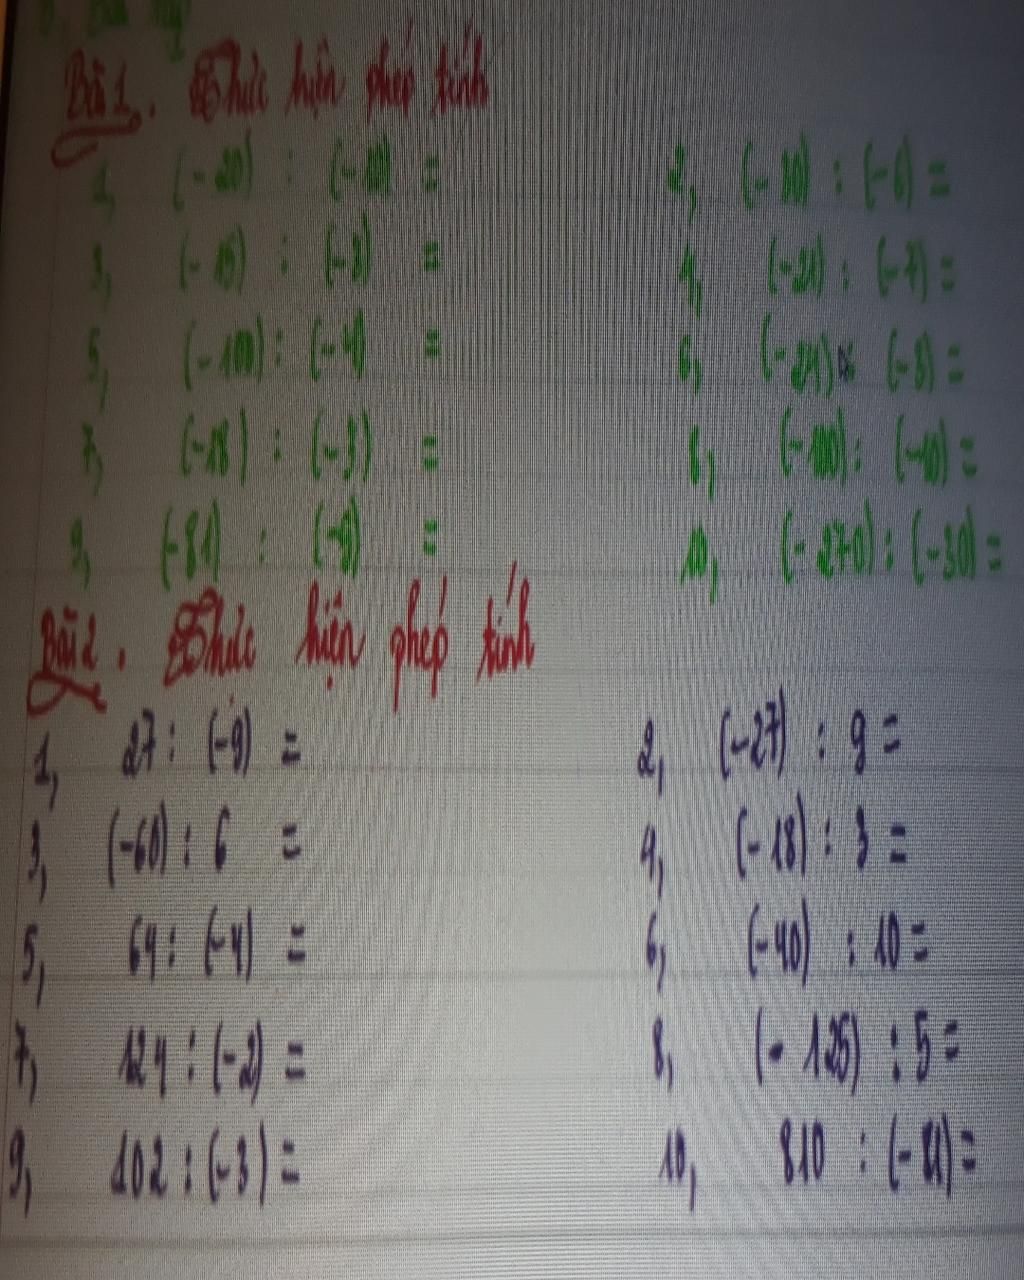 Bài 1. Thực hiện phép tính
1, (-20) : (-10) = 2, (-30) : (-6) =
3, (-15) : (-3) = 4, (-21) : (-7) =
5, (-100) : (-4) = 6, (-24) : (-8) =
7, (-18) : (-3) = 8, (-100) : (-10) =
9, (-81) : (-9) = 10, (-270) : (-30) =
Bài 2. Thực hiện phép tính
1, 27 : (-9) = 2, (-27) : 9 =
3, (-60) : 6 = 4, (-18) : 3 =
5, 64 : (-4) = 6, (-40) : 10 =
7, 124 : (-2) = 8, (-125) : 5 =
9, 102 : (-3) = 10, 810 : (-81) =